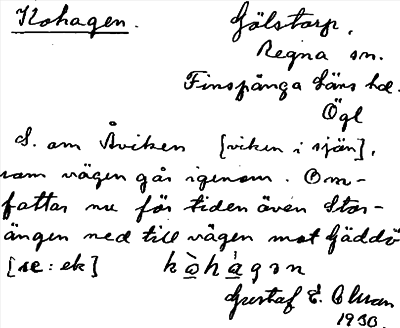 Kohagen. Gölstorp,
Regna sn.
Finspånga läns hd.
Ögl
S. om Åviken [viken i sjön],
som vägen går igenom. Om-
fattar nu för tiden även Stor-
ängen ned till vägen mot Gäddö
[se: ek] kò̲há̲gən
Gustaf E.
1930.